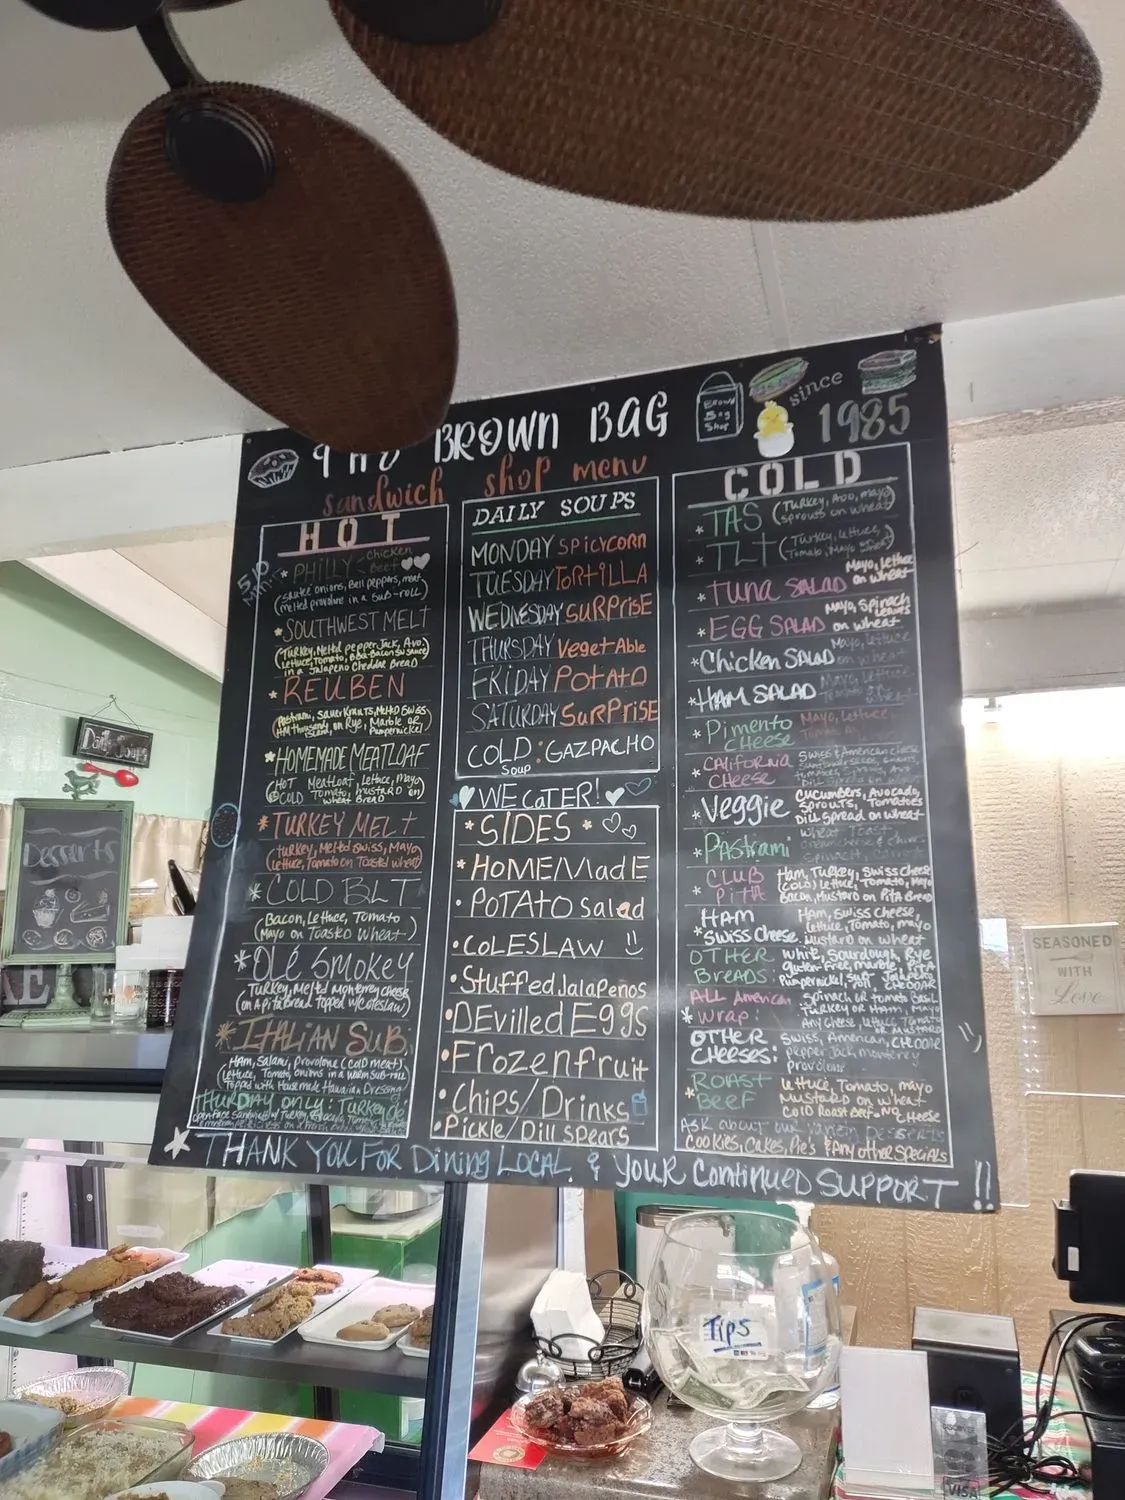 BROWN BAG
Brown
Bag
Shop
since
1985
sandwich shop menu
HOT
5/10
* PHILLY - Chicken
Beef
(sautée onions, Bell peppers, meat,
melted provolone in a sub-roll)
* SOUTHWEST MELT
(Turkey, Melted pepper Jack, Avo,
Lettuce, Tomato,
in a Jalapeno Cheddar Bread)
* REUBEN
(Pastrami, Sauerkraut, Melted Swiss,
thousand island, on Rye, Marble or
Pumpernickel)
* HOMEMADE MEATLOAF
(HOT Meatloaf, Lettuce, Mayo
COLD Tomato, mustard on
wheat Bread)
* TURKEY MELT
(turkey, Melted swiss, Mayo
Lettuce, Tomato on Toasted wheat)
* COLD BLT
(Bacon, Lettuce, Tomato
Mayo on Toasted wheat)
* Olé Smokey
(Turkey, Melted Monterey cheese
on a pita Bread topped w/ coleslaw)
* ITALIAN SUB:
Ham, Salami, provolone (cold meat)
(Lettuce, Tomato, onions in a warm sub-roll
Topped with Housemade Hawaiian Dressing
THURDAY ONLY: Turkey
DAILY SOUPS
MONDAY SPICYCORN
TUESDAY TORTILLA
WEDNESDAY SURPRISE
THURSDAY VegetAble
FRIDAY POTATO
SATURDAY SuRPriSE
COLD: GAZPACHO
Soup
WE CATER!
* SIDES *
* HOMEMadE
• POTATO Salad
• COLESLAW
• Stuffed Jalapeños
• DEvilled Eggs
• Frozen fruit
• Chips/Drinks
• Pickle/Dill Spears
COLD
* TAS (Turkey, Avo, mayo
sprouts on wheat)
* TLT (Turkey, Lettuce,
Tomato, Mayo wheat)
* TUNA SALAD Mayo, Lettuce
on wheat
* EGG SALAD Mayo, Spinach Leaves
on wheat
* Chicken SALAD Mayo, Lettuce
on wheat
* HAM SALAD Mayo, Lettuce
* Pimento Mayo, Lettuce,
CHEESE
* CALIFORNIA Swiss & American cheese
CHEESE
* Veggie Cucumbers, Avocado,
Sprouts, Tomatoes
Dill Spread on wheat
* Pastrami Wheat Toast
* CLUB Ham, Turkey, Swiss Cheese
PITA (cold) Lettuce, Tomato, Mayo
Bacon, Mustard on Pita Bread
* HAM Ham, Swiss Cheese,
Swiss Cheese Lettuce, Tomato, mayo
Mustard on wheat
OTHER White, Sourdough, Rye
BREADS: Gluten-Free, Marble, Pita
Pumpernickel, Sub, Jalapeño
* ALL American Spinach or tomato Basil
Wrap: Turkey or Ham, Mayo
Any Cheese, Lettuce, Tomato
OR MUSTARD
OTHER Swiss, American, Cheddar
CHEESES: pepper jack monterey
provolone
* ROAST Lettuce, Tomato, mayo
BEEF Mustard on wheat
Cold Roast Beef - NO CHEESE
Ask about our Desserts
Cookies, Cakes, Pie's & Any other Specials
THANK YOU FOR Dining LOCAL & YOUR Continued SUPPORT !!
Daily Soups
Desserts
SEASONED
WITH
Love
Tips
VISA